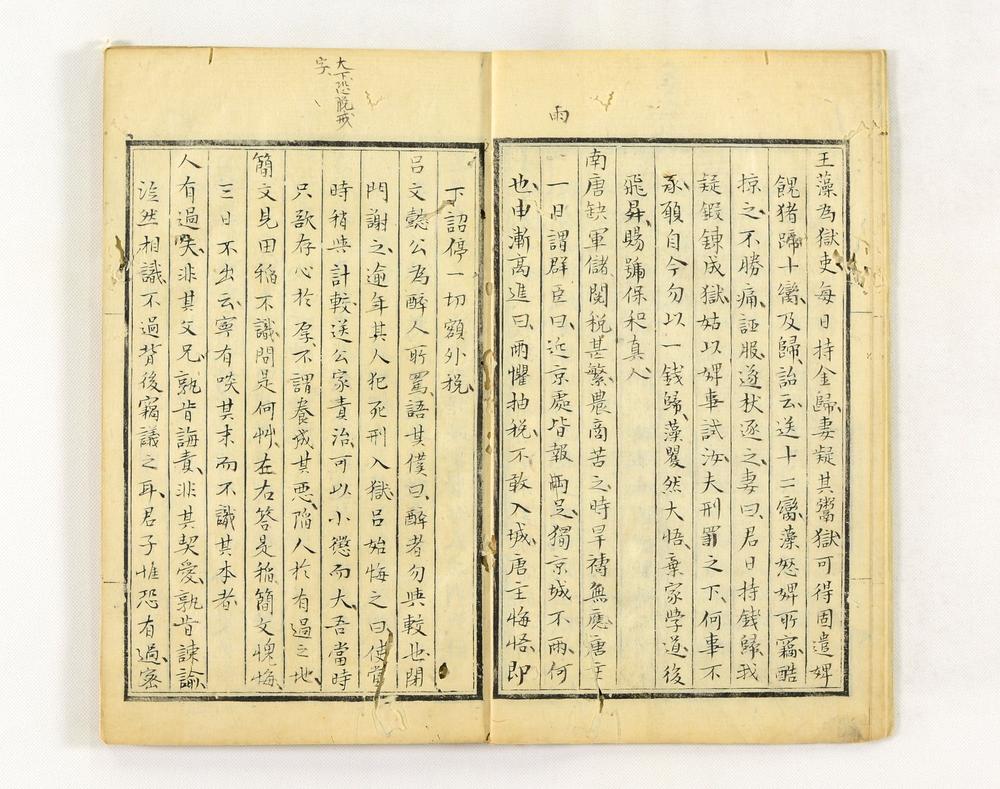 雨
王藻為獄吏每日持金歸妻疑其鬻獄可得固遣婢
餽猪蹄十臠及歸詒云送十二臠藻怒婢所竊酷
掠之不勝痛誣服遂杖逐之妻曰君日持錢歸我
疑鍛鍊成獄姑以婢事試汝夫刑罰之下何事不
承願自今勿以一錢歸藻矍然大悟棄家学道後
飛昇賜號保和真人
南唐缺軍儲関税甚繁農商苦之時旱禱無應唐主
一日謂群臣曰近京處皆報雨足獨京城不雨何
也申漸高進曰雨懼抽税不敢入城唐主悔悟即
大下恐脱戒
字
下詔停一切額外税
呂文懿公為醉人所罵語其僕曰醉者勿與較也閉
門謝之逾年其人犯死刑入獄呂始悔之曰使當
時稍與計較送公家責治可以小懲而大吾當時
只欲存心於厚不謂養成其悪陷人於有過之地
簡文見田稲不識問是何艸左右答是稲簡文愧悔
三日不出云寧有啖其末而不識其本者
人有過失非其父兄孰肯誨責非其契愛孰肯諫論
泛然相識不過背後竊議之耳君子惟恐有過密